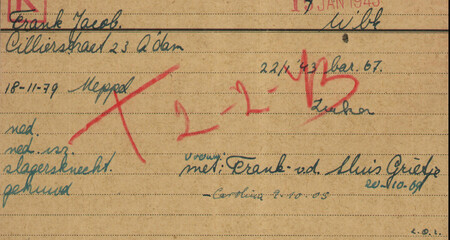 17 JAN 1943
Frank Jacob.
Cillierstraat 23 A'dam
22/1 '43 bar. 67.
18-11-79 Meppel
2-2-43
ned.
ned. isr.
slagersknecht.
gehuwd
vrouw:
met: Frank-v.d. Sluis Grietje
20-10-
-Carolina 9-10-05